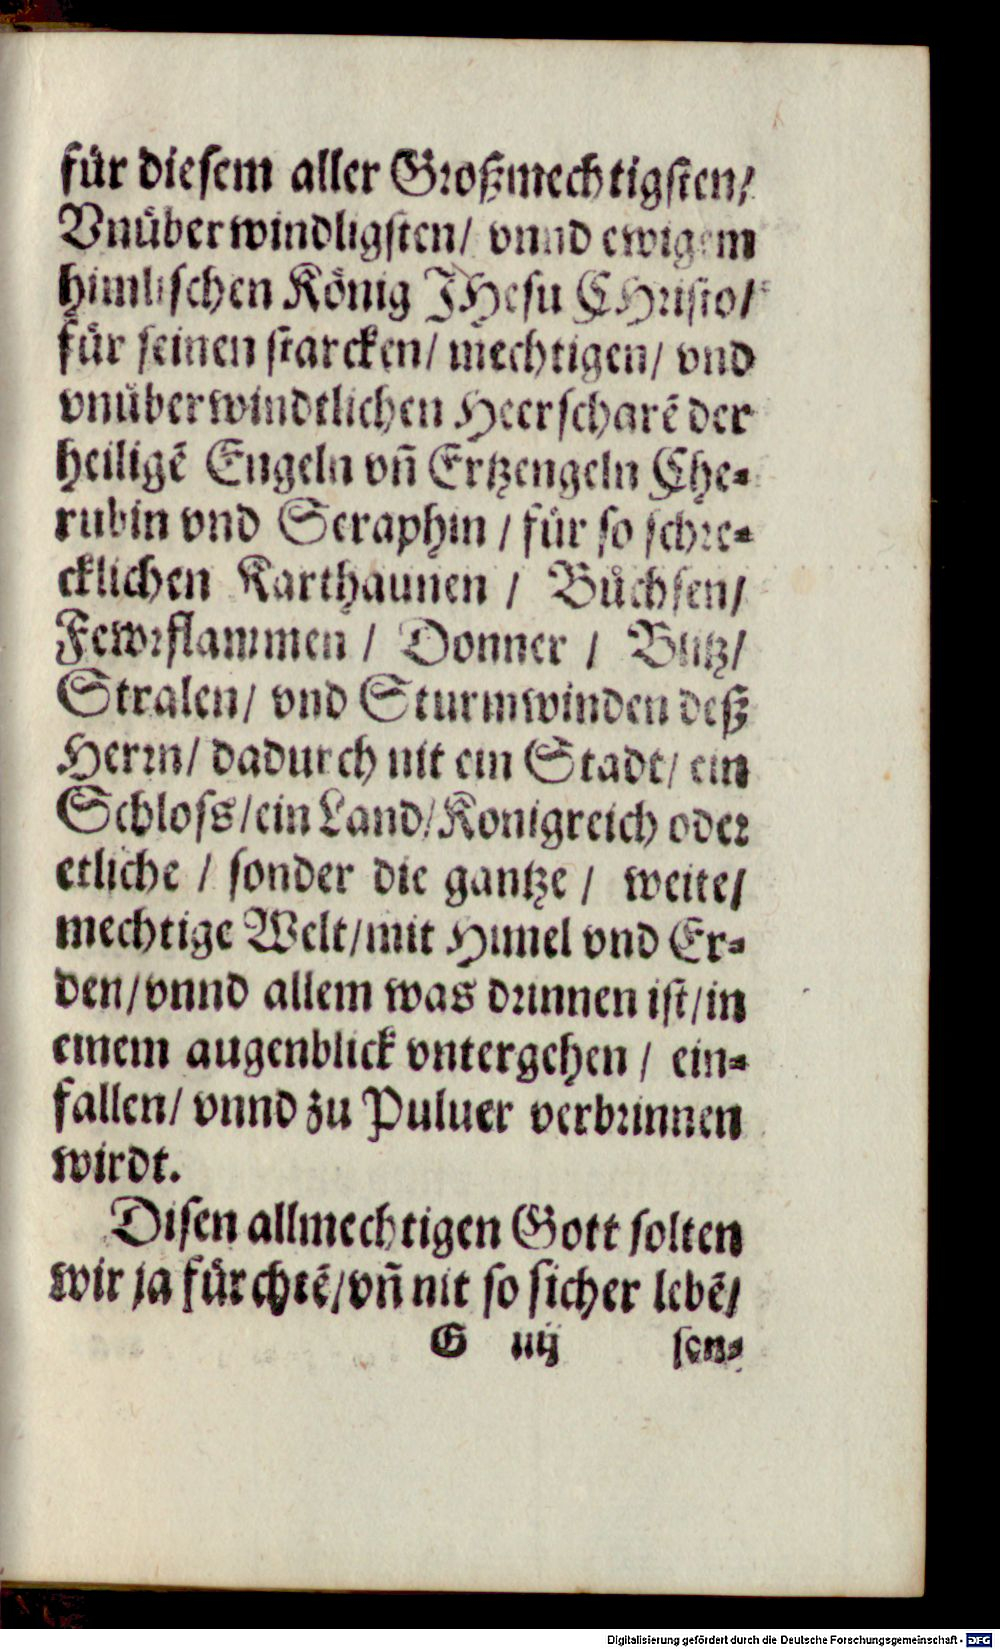 für diesem aller Großmechtigsten/
Vnüberwindligsten/ vnnd ewigem
himlischen König JHesu CHristo/
für seinen starcken/ mechtigen/ vnd
vnüberwindtlichen Heerscharē der
heiligē Engeln vñ Ertzengeln Che-
rubin vnd Seraphin / für so schre-
cklichen Karthaunen / Büchsen/
Fewrflammen / Donner / Blitz/
Stralen/ vnd Sturmwinden deß
Herrn/ dadurch nit ein Stadt/ ein
Schloss/ein Land/Konigreich oder
etliche / sonder die gantze / weite/
mechtige Welt/mit Himel vnd Er-
den/vnnd allem was drinnen ist/in
einem augenblick vntergehen / ein-
fallen/ vnnd zu Puluer verbrinnen
wirdt.
Disen allmechtigen Gott solten
wir ja fürchtē/vñ nit so sicher lebē/
G iiij sen-
Digitalisierung gefördert durch die Deutsche Forschungsgemeinschaft - DFG